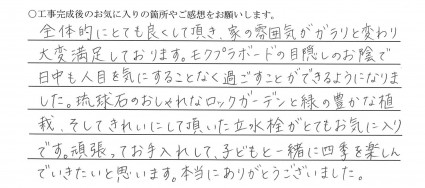 ○工事完成後のお気に入りの箇所やご感想をお願いします。
全体的にとても良くして頂き、家の雰囲気がガラリと変わり
大変満足しております。モクプラボードの目隠しのお陰で
日中も人目を気にすることなく過ごすことができるようになりま
した。琉球石のおしゃれなロックガーデンと緑の豊かな植
栽、そしてきれいにして頂いた立水栓がとてもお気に入り
です。頑張ってお手入れして、子どもと一緒に四季を楽しん
でいきたいと思います。本当にありがとうございました。